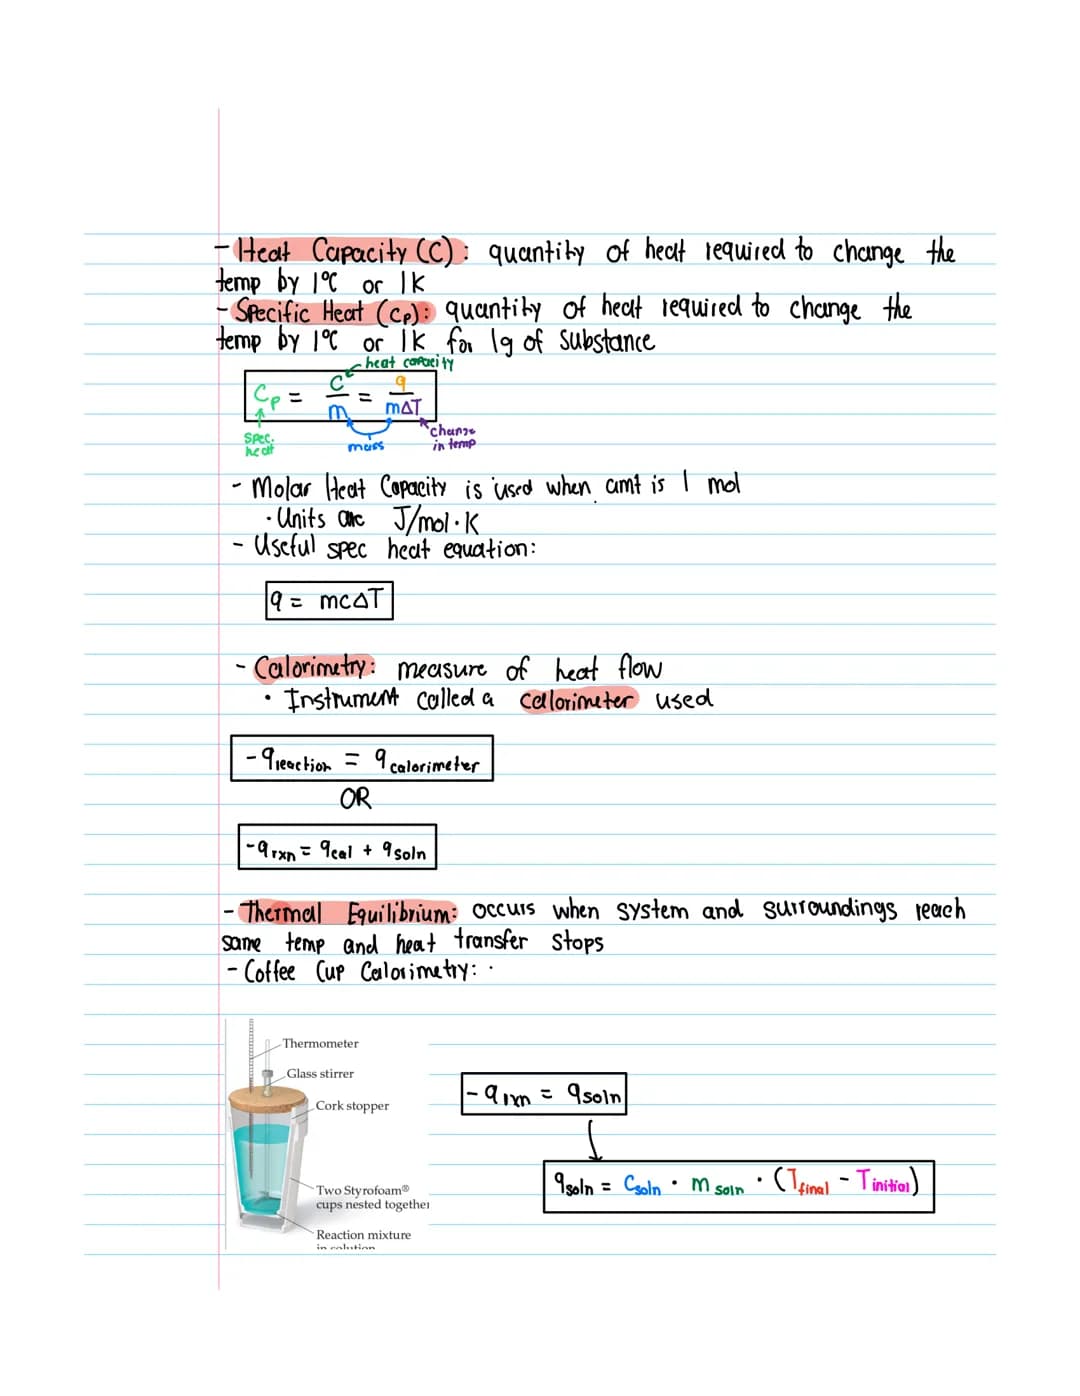 - Heat Capacity (C): quantity of heat required to change the
temp by 1°C or 1K
- Specific Heat (Cp): quantity of heat required to change the
temp by 1°C or 1K for 1g of substance
heat capacity
Cp = C/m = q/m∆T
spec. heat
mass
change in temp
- Molar Heat Capacity is used when amt is 1 mol
· Units are J/mol·K
- Useful spec heat equation:
q = mc∆T
- Calorimetry: measure of heat flow
• Instrument called a calorimeter used
-q reaction = q calorimeter
OR
-q rxn = q cal + q soln
- Thermal Equilibrium: occurs when system and surroundings reach
same temp and heat transfer stops
- Coffee Cup Calorimetry: ·
Thermometer
Glass stirrer
Cork stopper
Two Styrofoam®
cups nested together
Reaction mixture
in solution
-q rxn = q soln
q soln = C soln · m soln · (T final - T initial)